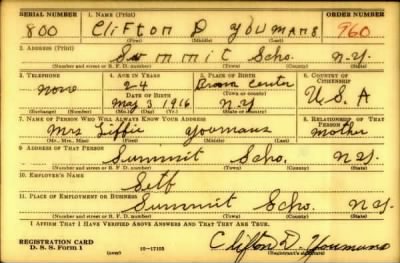 SERIAL NUMBER 1. NAME (Print) ORDER NUMBER
800 Clifton D Youmans 960
(First) (Middle) (Last)
2. ADDRESS (Print)
Summit Scho. N-Y-
(Number and street or R. F. D. number) (Town) (County) (State)
3. TELEPHONE 4. AGE IN YEARS 5. PLACE OF BIRTH 6. COUNTRY OF CITIZENSHIP
None 24 Center
DATE OF BIRTH (Town or county)
May 3 1916 N.Y U.S.A
(Exchange) (Number) (Mo.) (Day) (Yr.) (State or country)
7. NAME OF PERSON WHO WILL ALWAYS KNOW YOUR ADDRESS 8. RELATIONSHIP OF THAT PERSON
Mrs Youmans Mother
(Mr., Mrs., Miss) (First) (Middle) (Last)
9. ADDRESS OF THAT PERSON
Summit Scho. N.Y.
(Number and street or R. F. D. number) (Town) (County) (State)
10. EMPLOYER'S NAME
Self
11. PLACE OF EMPLOYMENT OR BUSINESS
Summit Scho. N.Y.
(Number and street or R. F. D. number) (Town) (County) (State)
I AFFIRM THAT I HAVE VERIFIED ABOVE ANSWERS AND THAT THEY ARE TRUE.
REGISTRATION CARD
D. S. S. Form 1 16-17105 Clifton D. Youmans
(Registrant's signature)